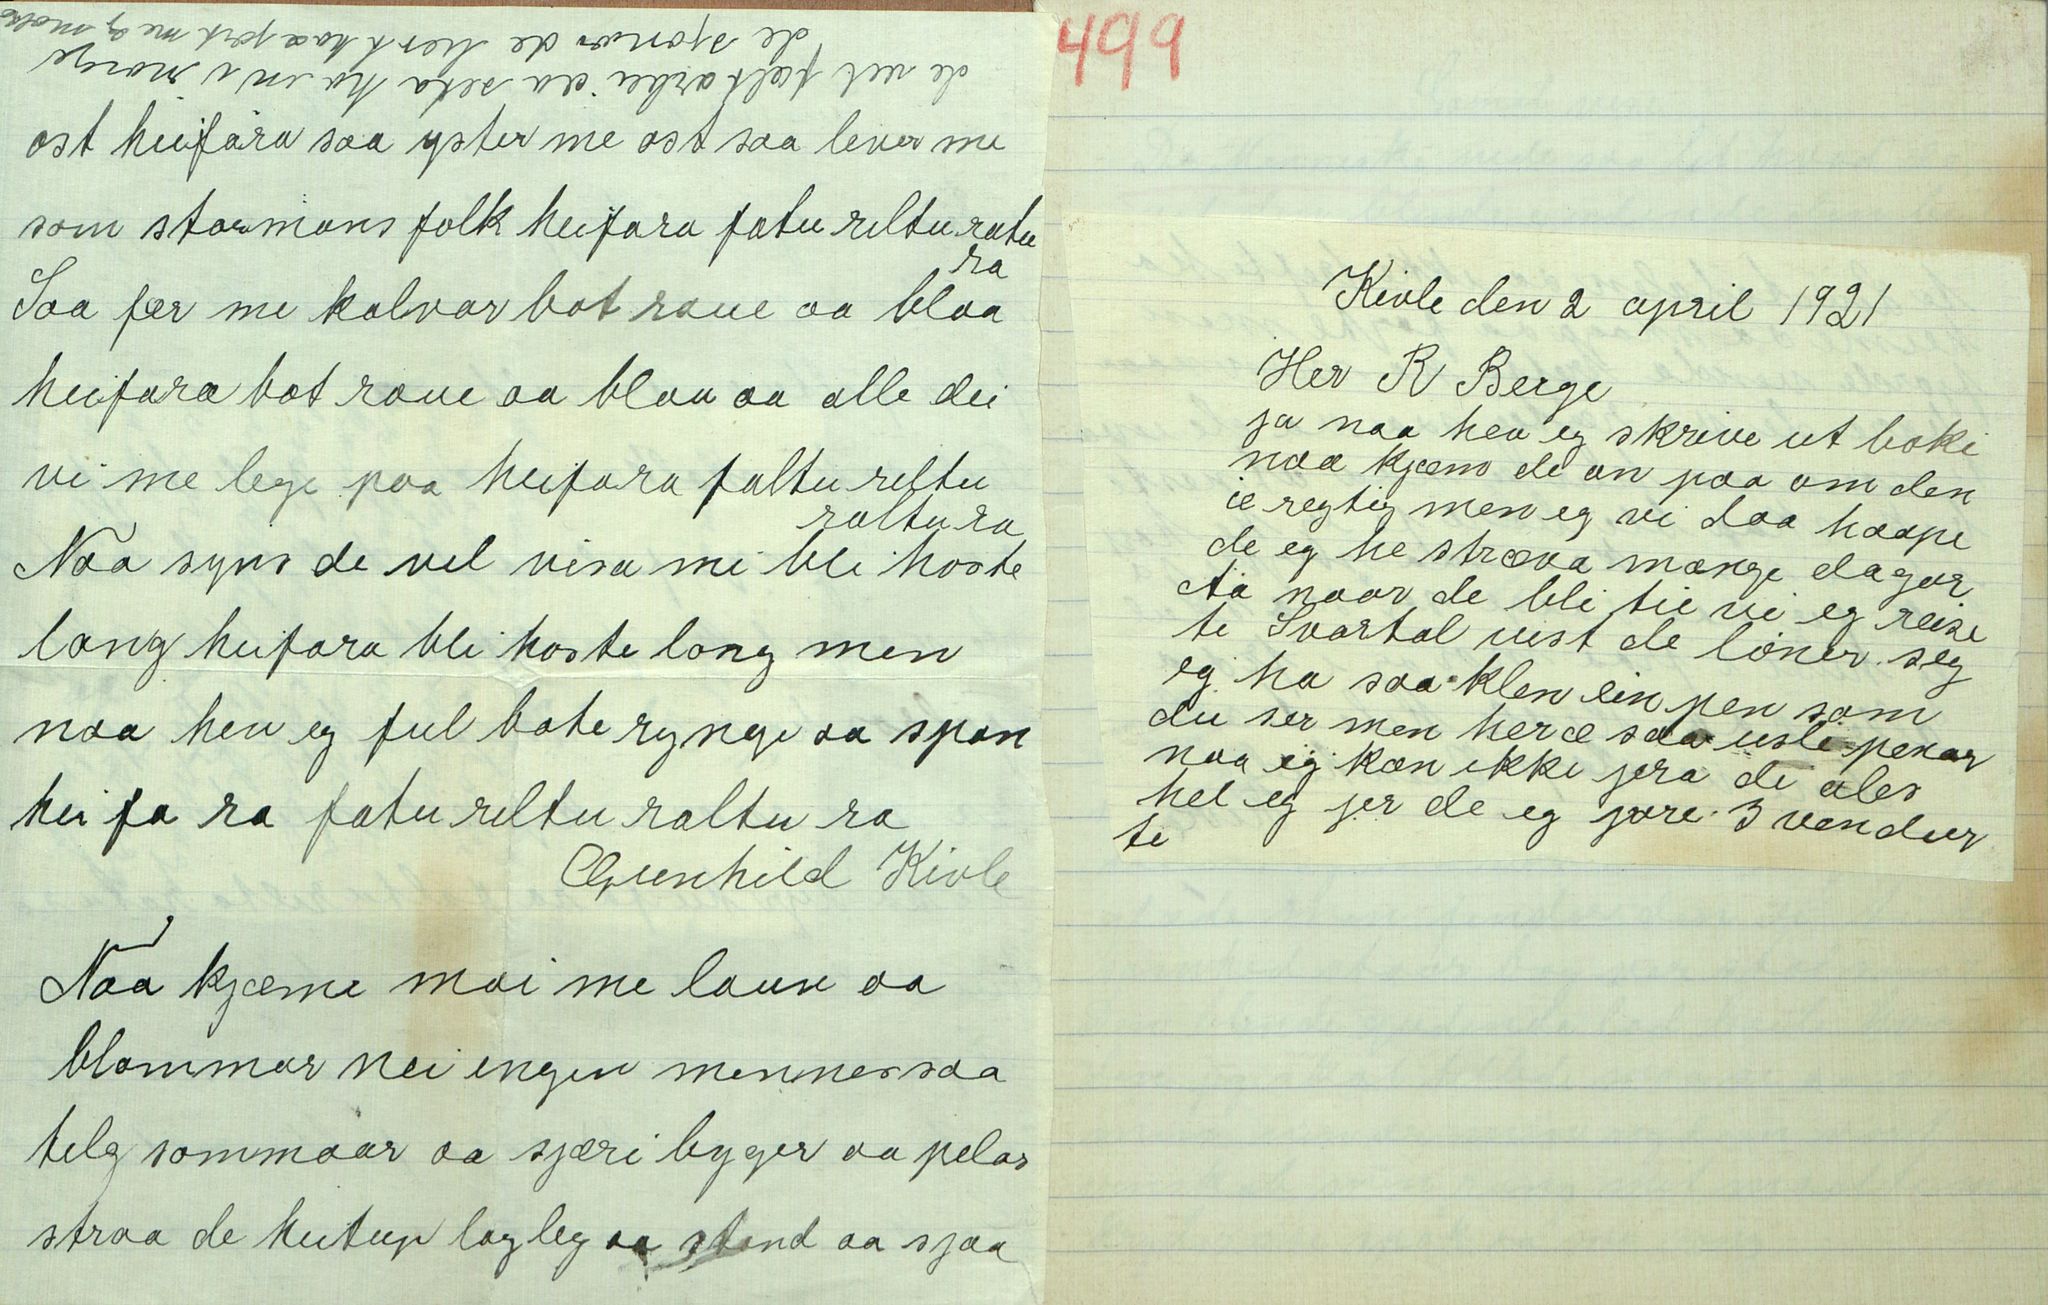 de sjonar de
de ut arbei aa seta ho en i norge
ost heifara saa yster me ost saa lever me
som stormans folk heifara fatu reltu ratu
ra
Saa fær me kalvar bot raue aa blaa
heifara bot raue aa blaa aa alle dei
vi me lege paa heifara faltu reltu
raltu ra
Naa syns de vel visa mi bli hoste
lang heifara bli hoste lang men
naa hev eg ful bate rynge aa span
hei fa ra fatu reltu raltu ra
Gunhild Kivle
Naa kjæme mai me lauv aa
blommar nei ingen mennes saa
telg sommaar aa sjæri byger aa pelar
straa de heitup lagleg aa stand aa sjaa
499
Kivle den 2 april 1921
Her R Berge
ja naa hev eg skrive ut boki
naa kjæm de an paa om den
ie regtig men eg vi daa haape
de eg he stræva mange dagar
Aa naar de bli tie vi eg reise
te Svartdal vist de løner seg
eg ha saa klen ein pen som
du ser men her æ saa usle penar
naa eg kan ikki jera de ales
hel eg jer de eg jore 3 vendur
te